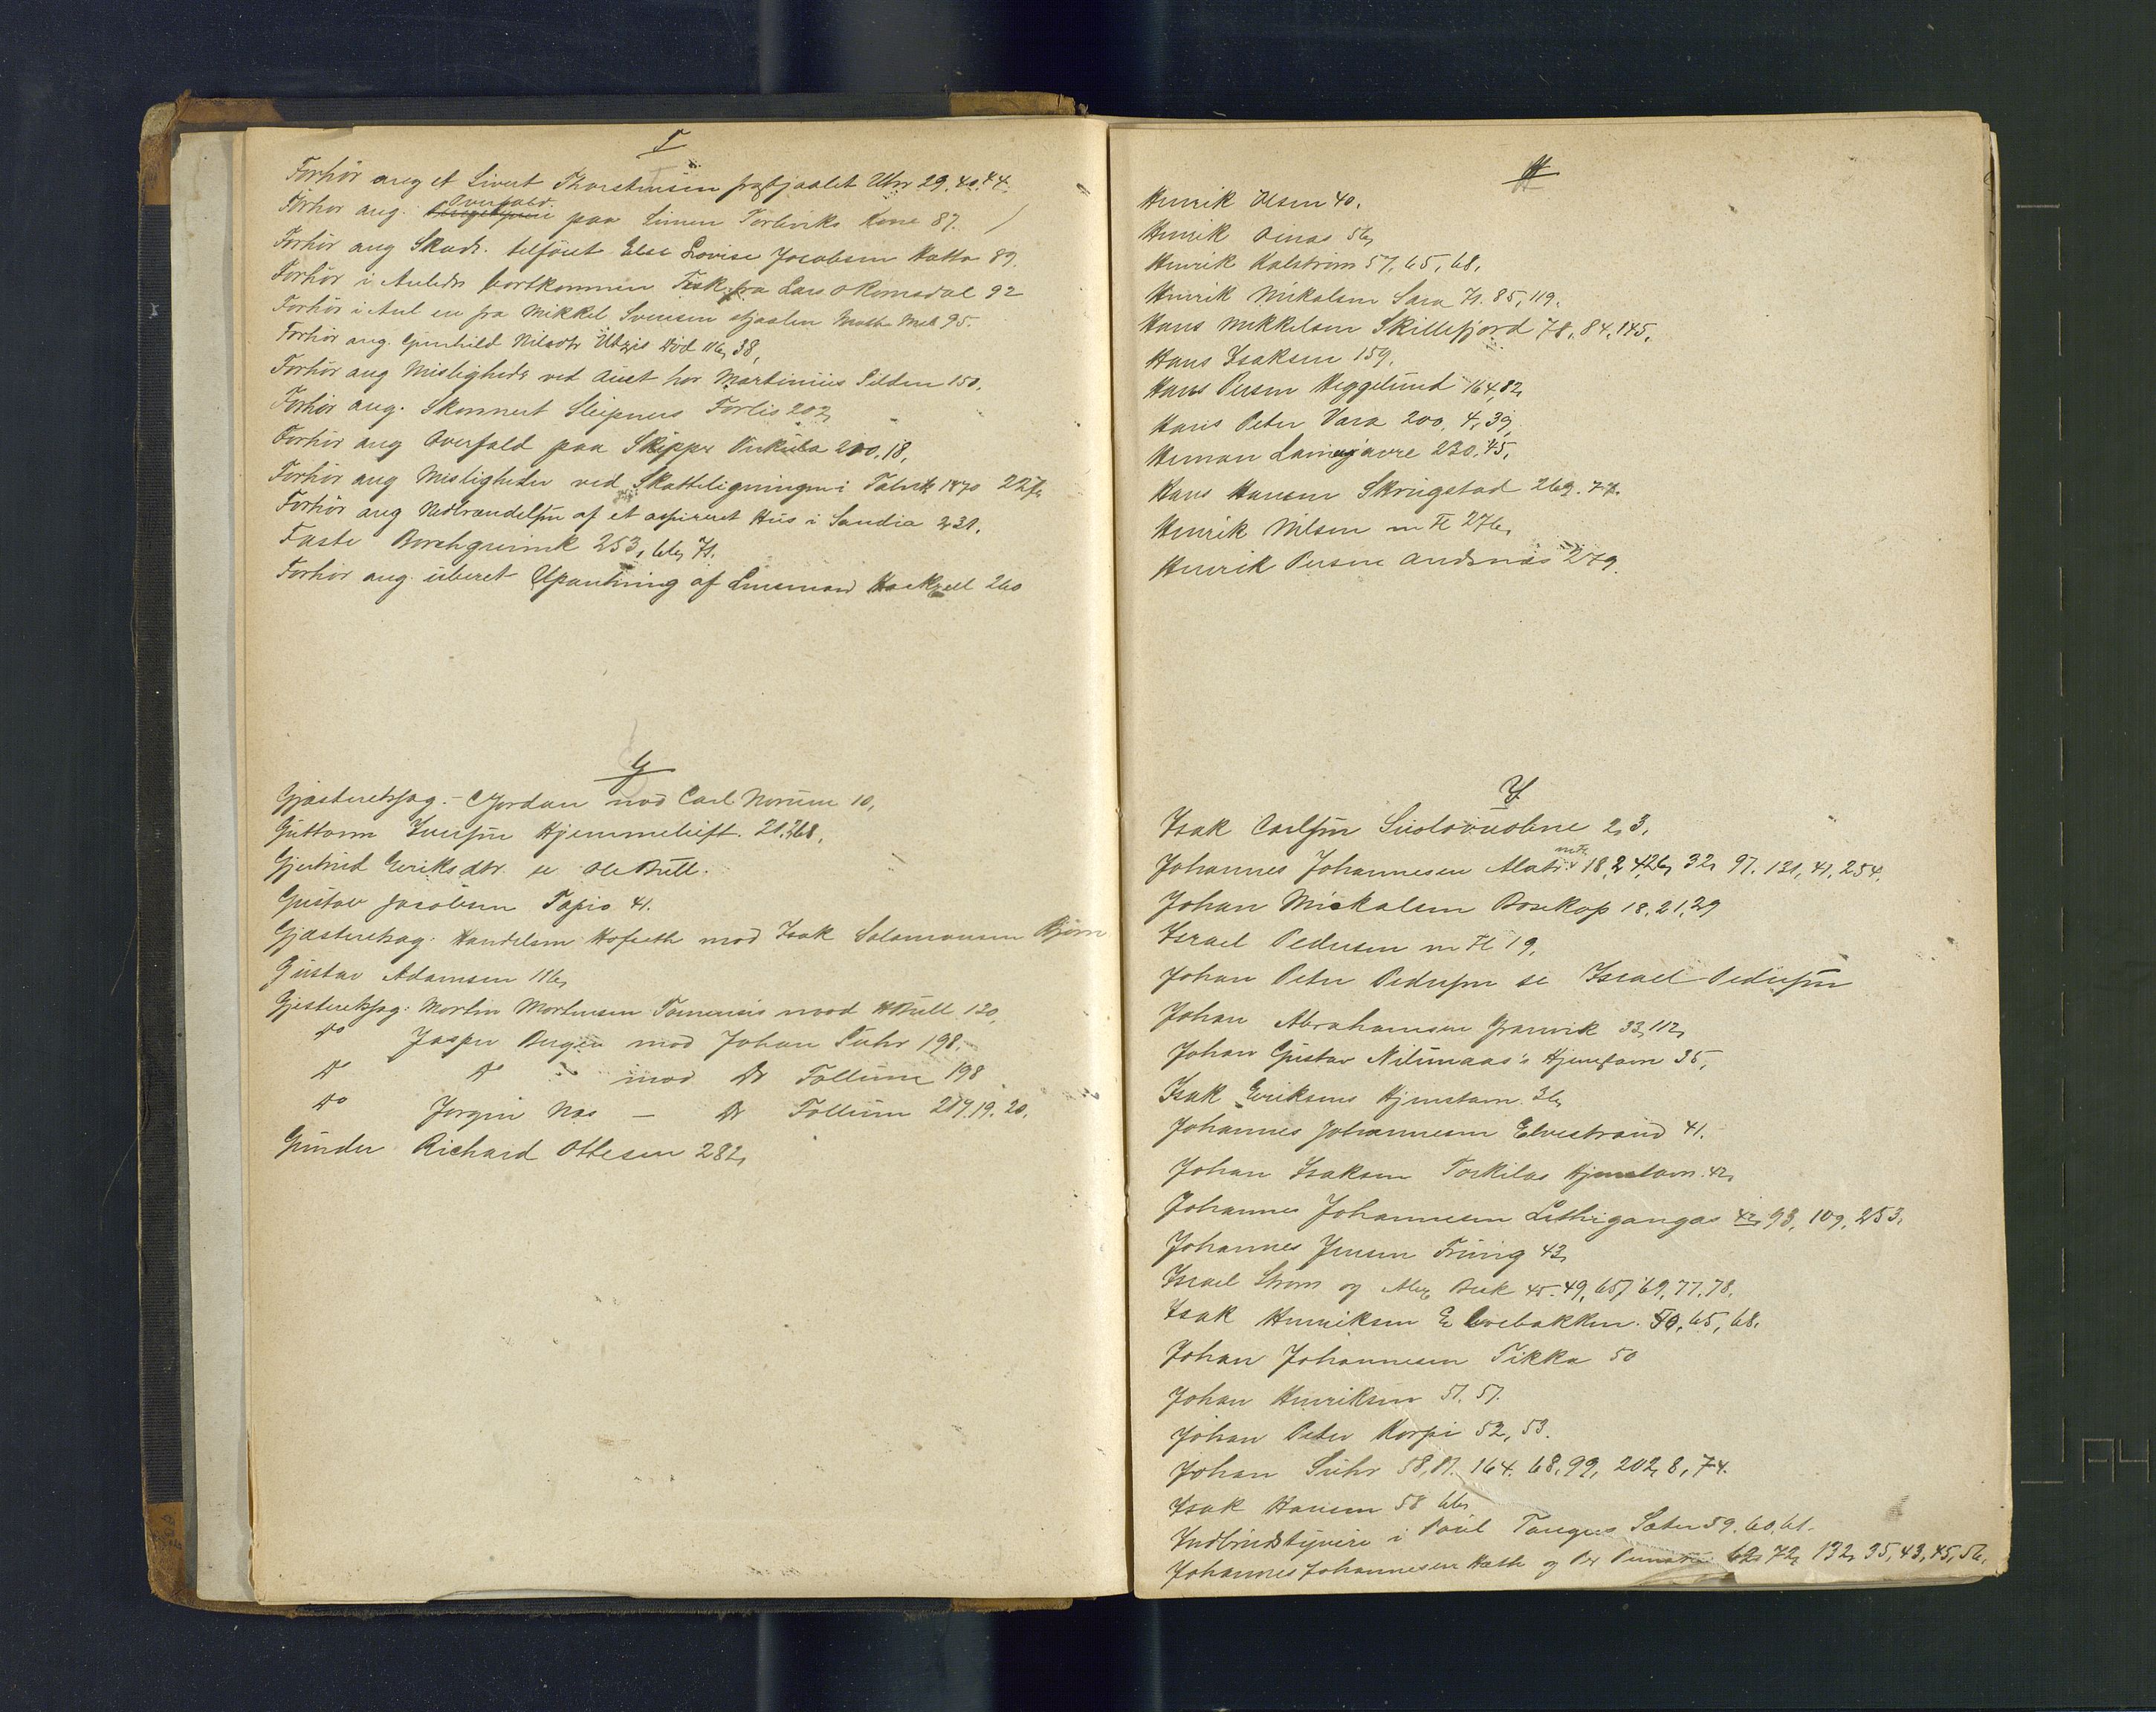 F
Forhör ang et Sivert Thorstensen frastjaalet Uhr 29. 40. 44.
Forhör ang. Overfald paa Simen Torbviks Kone 87.
Forhör ang Skade. tilföiet Else Lovise Jacobsen Hatta 89.
Forhör i Anledn bortkommen Fisk fra Lars O Romsdal 92
Forhör i Anl en fra Mikkel Svensen stjaalen Mel 95.
Forhör ang. Gunhild Nilsdtr Utzis Död 116, 38,
Forhör ang Misligheder ved Auct hos Martinius Silden 150.
Forhör ang. Skonnert Sleipners Forlis 202,
Forhör ang Overfald paa Skipper 200. 18.
Forhör ang Misligheder ved Skatteligningen i Talvik 1870 227,
Forhör ang Nedbrændelsen af et Hus i Sandia 231.
Faste Borchgrevink 253, 66, 71.
Forhör ang. uberet Udpantning af Lensmand 260
G
Gjæsteretssag.- C Jordan mod Carl Norum 10,
Guttorm Iversen Hjemmelsift. 21. 268.
Gjertrud Eriksdtr. se Ole Bull.
Gustav Jacobsen Tapio 41.
Gjæsteretssag. Handelsm Hofseth mod Isak Salamonsen Björn
Gustav Adamsen 116,
Gjæsteretssag: Morten Mortensen mod Bull 120,
Do Jasper Berger mod Johan Suhr 198.
Do Do imod Dr Follum 198
Do Jörgen Næs — Dr Follum 217. 19. 20.
Gunder Richard Ottesen 282,
H
Henrik Olsen 40.
Henrik Oinas 56,
Henrik Kalström 57, 65, 68,
Henrik Mikalsen Sara 71. 85, 119.
Hans Mikkelsen Skillefjord 78, 84, 145,
Hans Isaksen 159.
Hans Persen Heggelund 164, 82,
Hans Peter Vara 200, 4, 39,
Herman 230. 45,
Hans Hansen Skrugstad 269. 77.
Henrik Nilsen m Fl 276,
Henrik Persen Andsnæs 279.
I
Isak Carlsen 2, 3.
Johannes Johannesen m Fl 18, 2 42, 32, 97. 131, 41, 254.
Johan Mickalsen Bosekop 18. 21, 29
Israel Pedersen m Fl 19,
Johan Peter Pedersen se Israel Pedersen
Johan Abrahamsen 33, 112,
Johan Gustav Hjemstavn 35,
Isak Eriksens Hjemstavn. 36,
Johannes Johannesen Elvestrand 41.
Johan Isaksen Torkilas Hjemstavn. 42,
Johannes Johannesen 42, 93, 109, 253.
Johannes Jensen 43,
Israel Ström og Alex Beck 45. 49, 65, 69, 77. 78,
Isak Henriksen Elvebakken. 50, 65, 68.
Johan Johannesen Tikka 50
Johan Henriksen 51. 57.
Johan Peter Korpi 52, 53.
Johan Suhr 58, 164. 68. 99, 202, 8, 74.
Isak Hansen 58 66,
Indbrudstyveri i Poul Sæter 59. 60. 61.
Johannes Johannesen Hætta og Per 62, 72, 132, 35, 43, 45, 56,